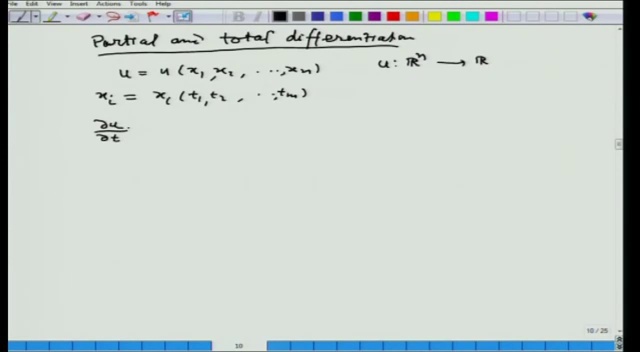 File Edit View Insert Actions Tools Help
Partial and total differentiation
u = u (x₁, x₂, ..., xₙ) u: ℝⁿ ⟶ ℝ
xᵢ = xᵢ (t₁, t₂, ..., tₘ)
∂u/∂t
10 / 25
10